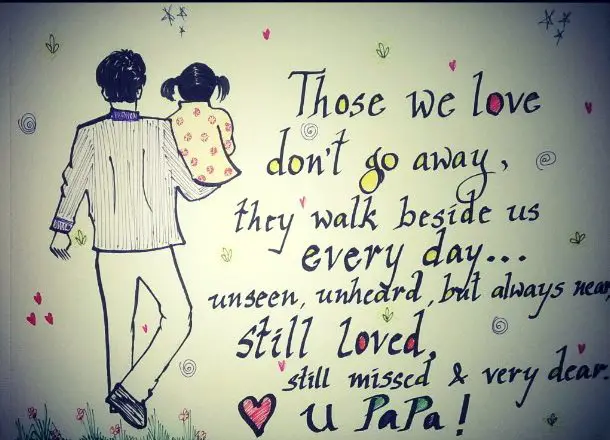 Those we love
don't go away,
they walk beside us
every day...
unseen, unheard, but always near,
still loved,
still missed & very dear.
U PaPa!